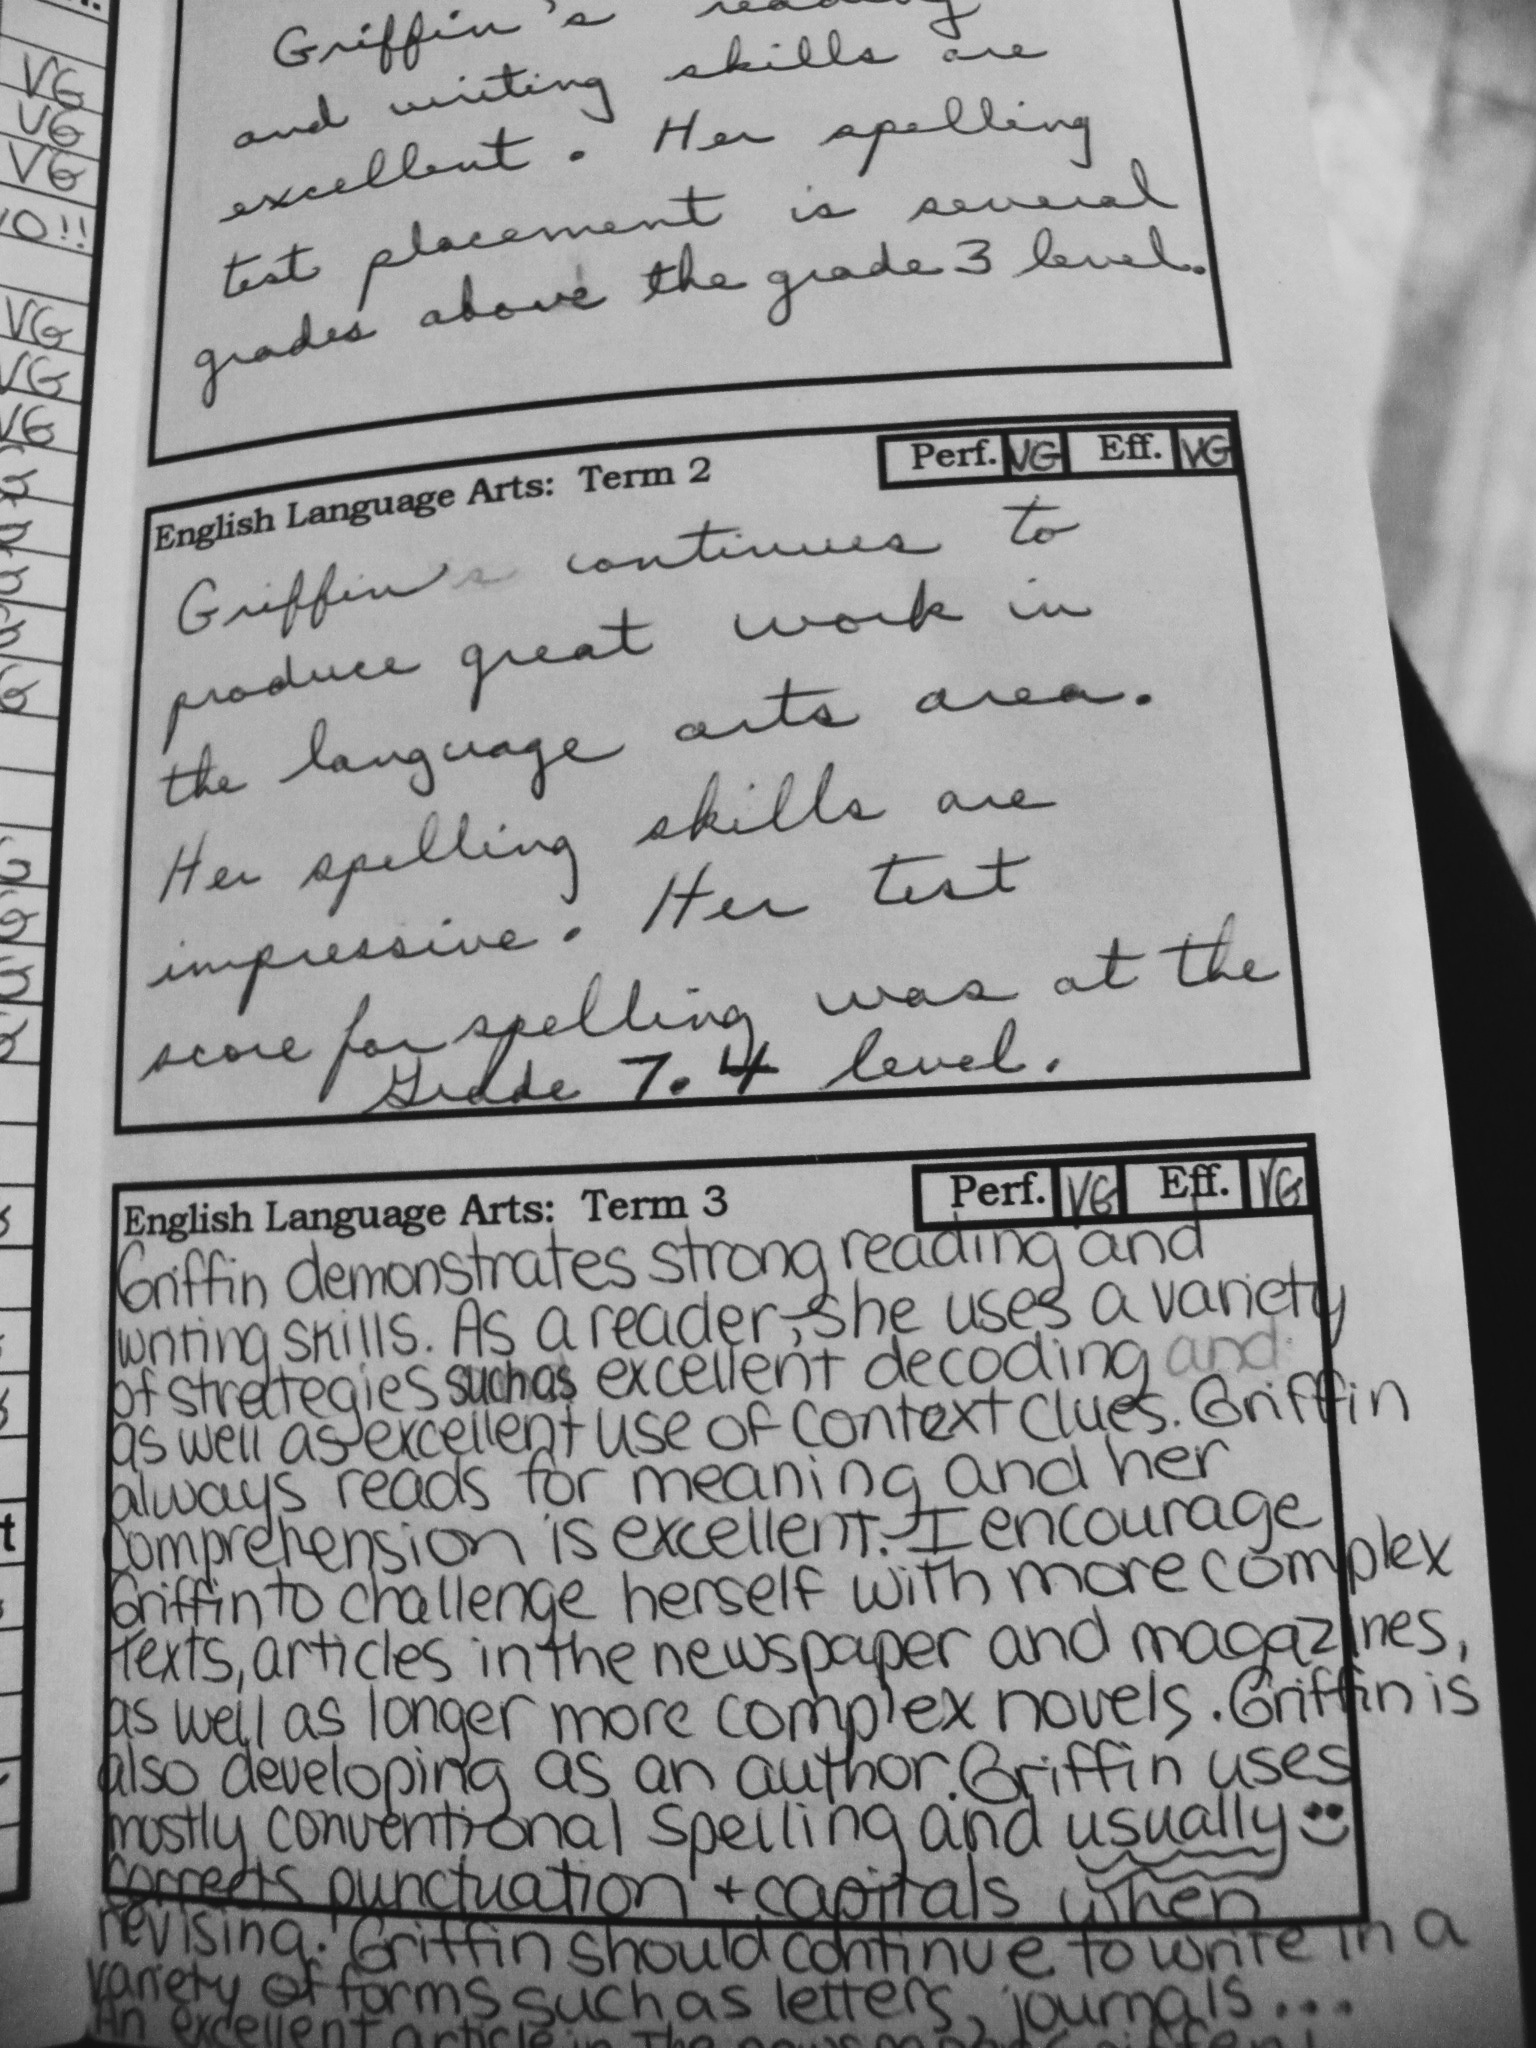 VG
VG
VG
O!!
VG
VG
VG
Griffin's reading
and writing skills are
excellent. Her spelling
test placement is several
grades above the grade 3 level.
English Language Arts: Term 2
Perf. VG Eff. VG
Griffin's continues to
produce great work in
the language arts area.
Her spelling skills are
impressive. Her test
score for spelling was at the
Grade 7.4 level.
English Language Arts: Term 3
Perf. VG Eff. VG
Griffin demonstrates strong reading and
writing skills. As a reader, she uses a variety
of strategies such as excellent decoding and
as well as excellent use of context clues. Griffin
always reads for meaning and her
comprehension is excellent. I encourage
Griffin to challenge herself with more complex
texts, articles in the newspaper and magazines,
as well as longer more complex novels. Griffin is
also developing as an author. Griffin uses
mostly conventional spelling and usually
corrects punctuation + capitals when
revising. Griffin should continue to write in a
variety of forms such as letters, journals...
An excellent article in the